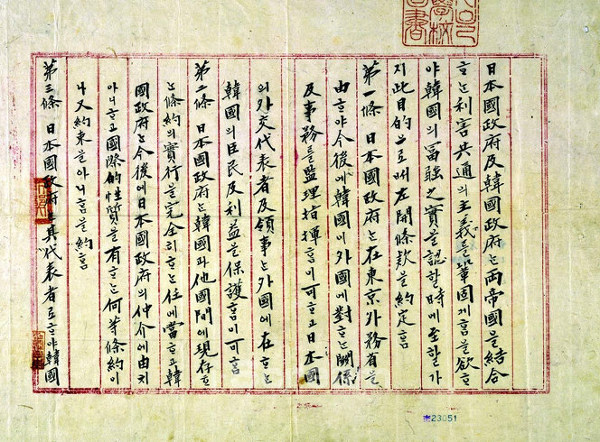 日本國政府及韓國政府는兩帝國을結合
ᄒᆞ는利害共通의主義를鞏固케홈을欲ᄒᆞ
야韓國의富强之實을認ᄒᆞᆯ時에至ᄒᆞᆯ가
지此目的으로써左開條款을約定홈
第一條 日本國政府는在東京外務省을
由ᄒᆞ야今後에韓國이外國에對ᄒᆞ는關係
及事務를監理指揮홈이可ᄒᆞ고日本國
의外交代表者及領事는外國에在ᄒᆞ는
韓國의臣民及利益을保護홈이可홈
第二條 日本國政府는韓國과他國間에現存ᄒᆞ
는條約의實行을完全히ᄒᆞ는任에當ᄒᆞ고韓
國政府는今後에日本國政府의仲介에由치
아니ᄒᆞ고國際的性質을有ᄒᆞ는何等條約이
나又約束을아니홈을約홈
第三條 日本國政府는其代表者로ᄒᆞ야韓國
23051